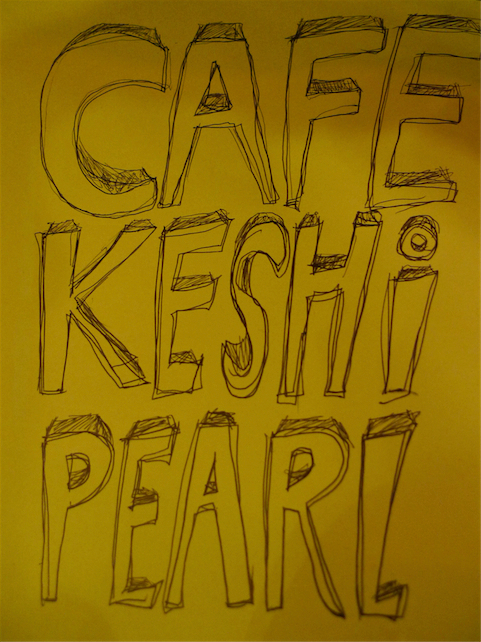 CAFE
KESHi
PEARL